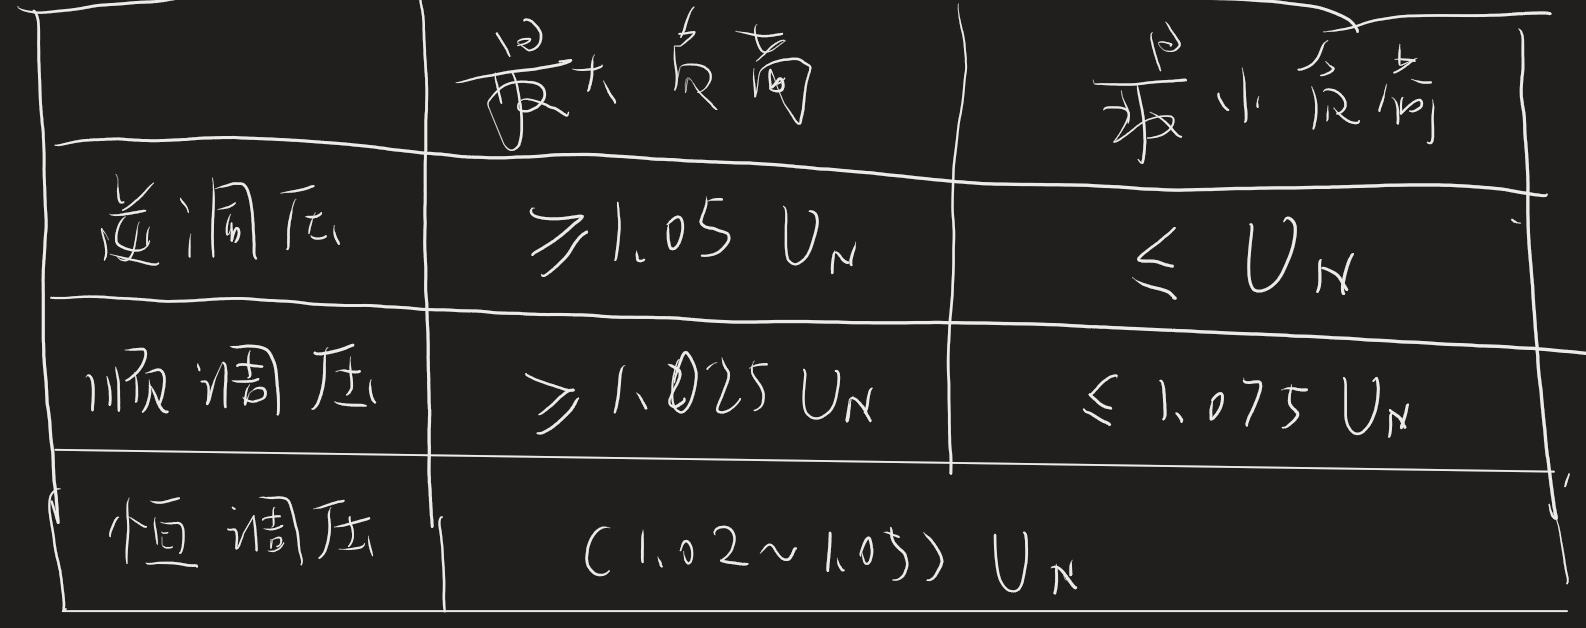 最大负荷 最小负荷
逆调压 ≥1.05 U_N ≤ U_N
顺调压 ≥1.025 U_N ≤1.075 U_N
恒调压 (1.02~1.05) U_N